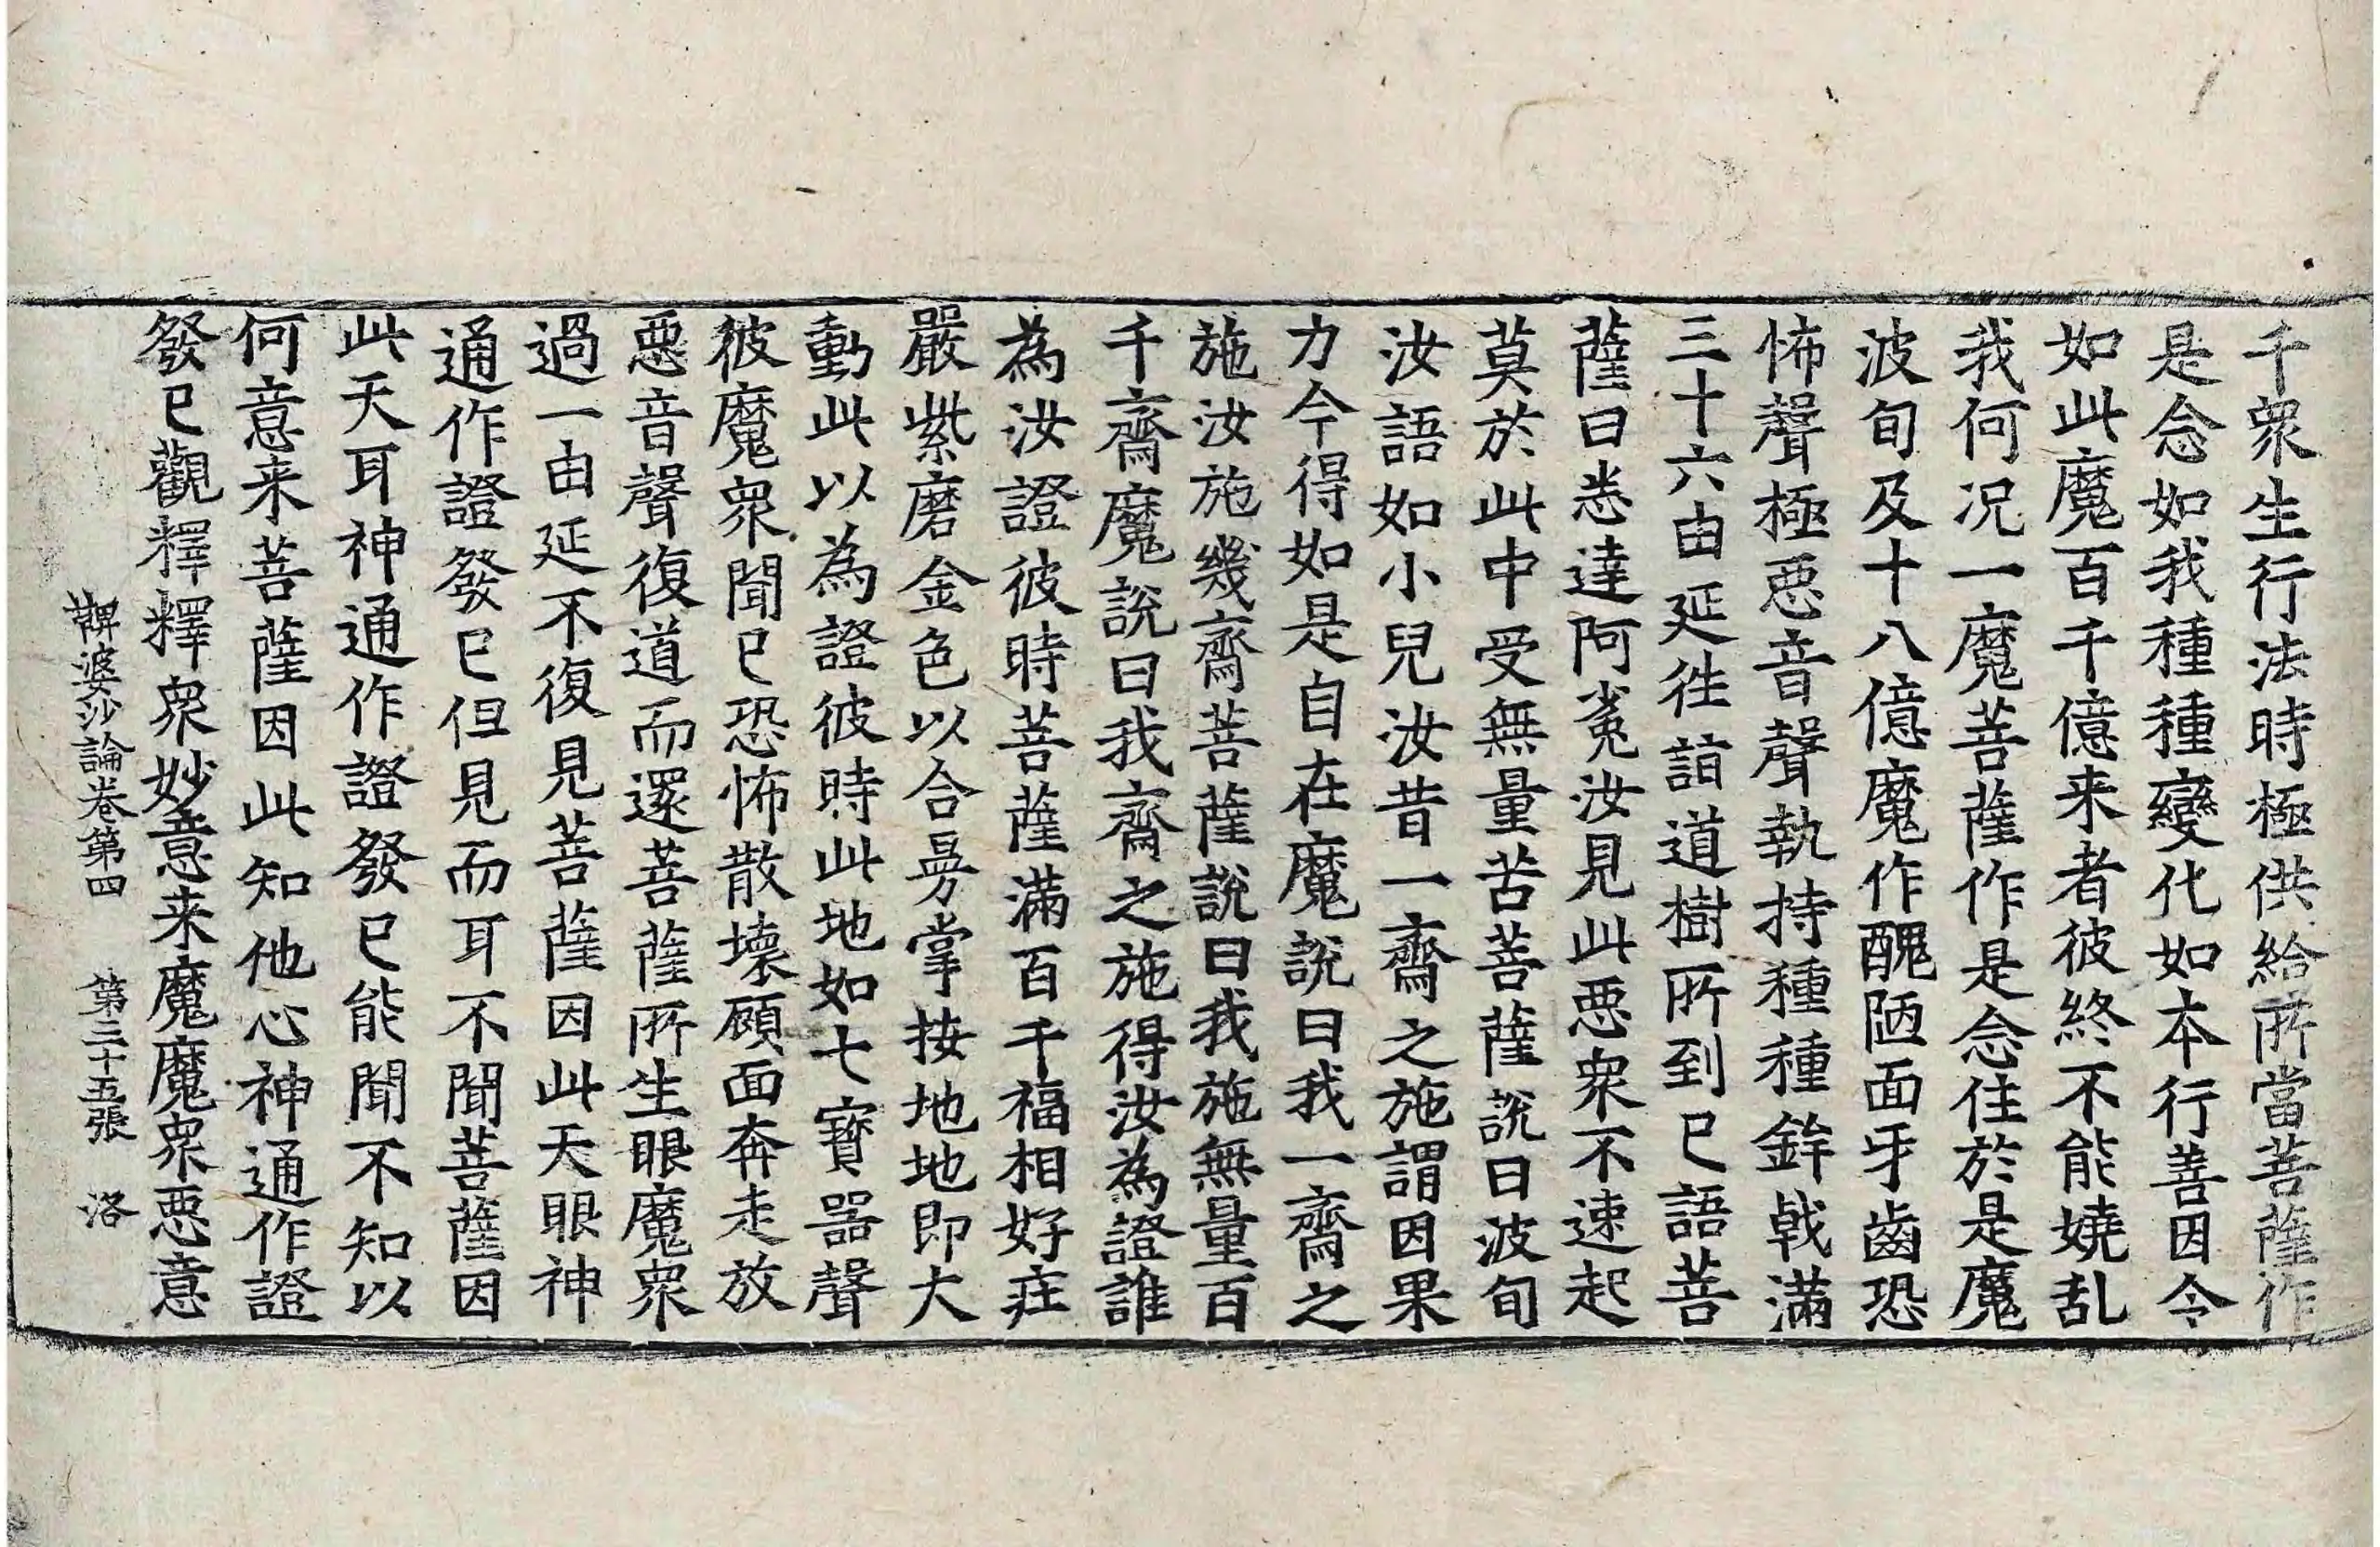 千衆生行法時極供給所當菩薩作
是念如我種種變化如本行善因令
如此魔百千億来者彼終不能嬈乱
我何况一魔菩薩作是念住於是魔
波旬及十八億魔作醜陋面牙齒恐
怖聲極惡音聲執持種種鉾戟滿
三十六由延徃詣道樹所到已語菩
薩曰悉達阿㝹汝見此惡衆不速起
莫於此中受無量苦菩薩說曰波旬
汝語如小兒汝昔一齋之施謂因果
力今得如是自在魔說曰我一齋之
施汝施幾齋菩薩說曰我施無量百
千齋魔說曰我齋之施得汝為證誰
為汝證彼時菩薩滿百千福相好庄
嚴紫磨金色以合曼掌按地地即大
動此以為證彼時此地如七寶器聲
彼魔衆聞已恐怖散壞顧面奔走放
惡音聲復道而還菩薩所生眼魔衆
過一由延不復見菩薩因此天眼神
通作證發已但見而耳不聞菩薩因
此天耳神通作證發已能聞不知以
何意来菩薩因此知他心神通作證
發已觀釋釋衆妙意来魔魔衆惡意
鞞婆沙論卷第四　第三十五張　洛